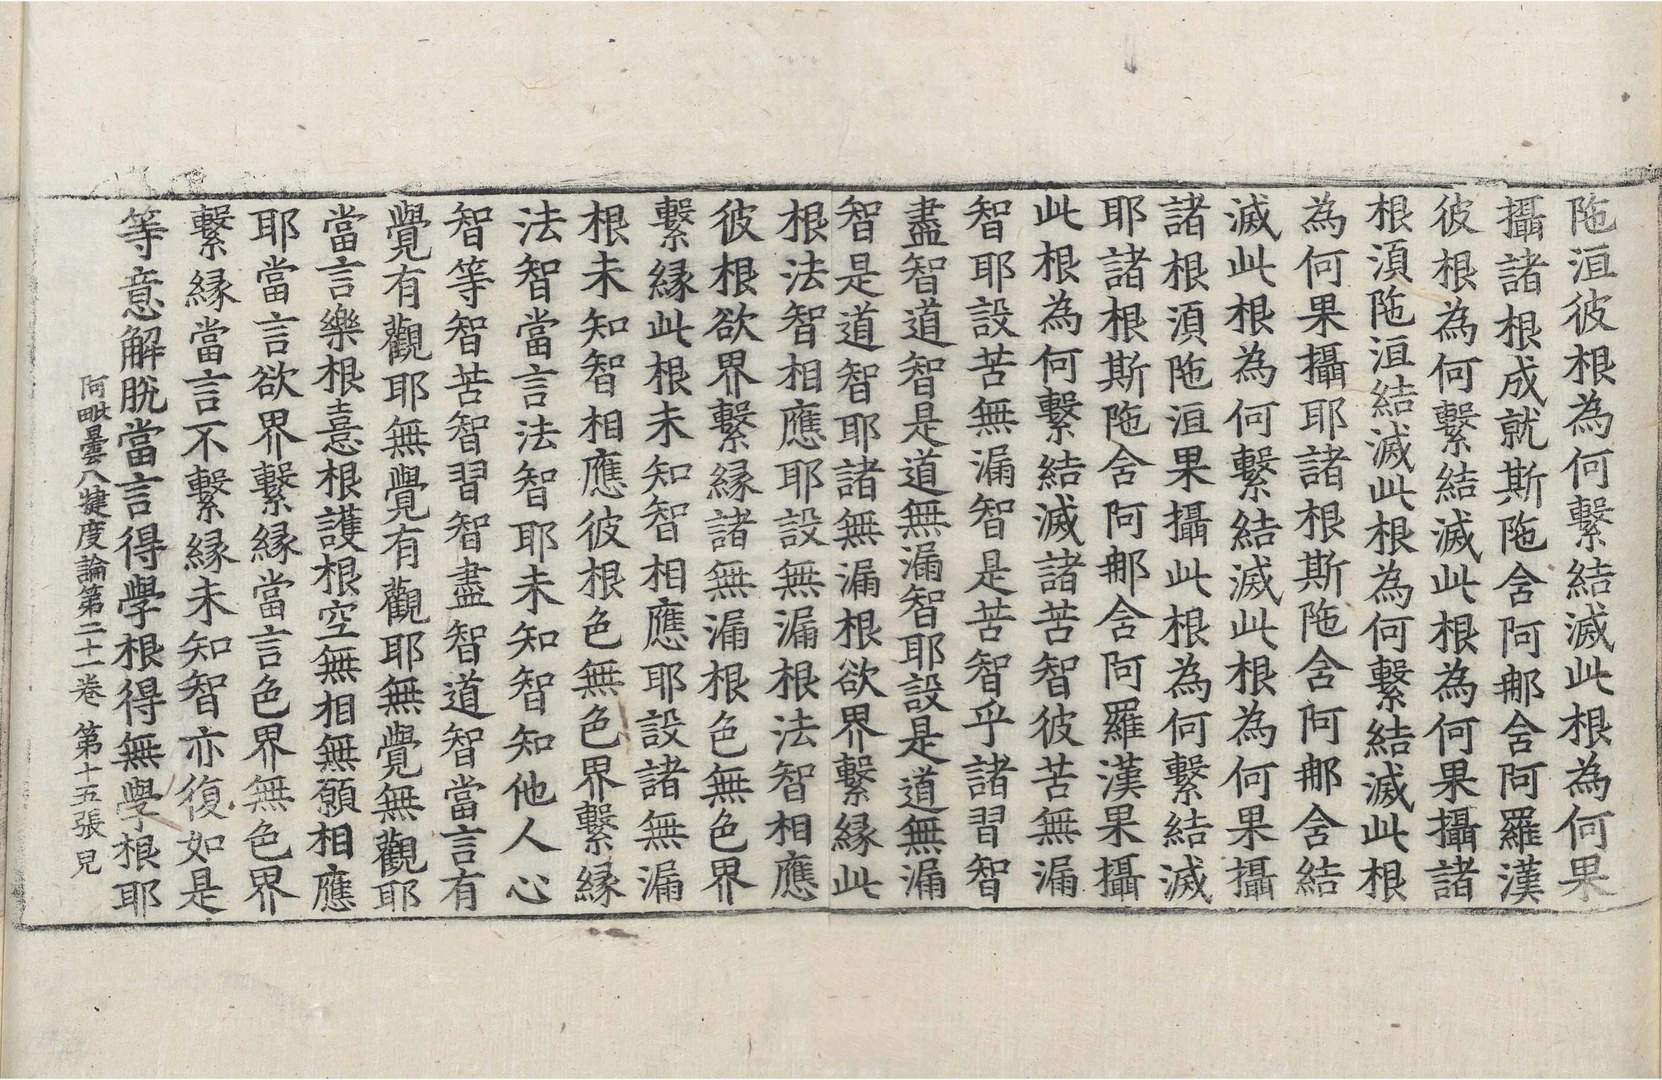 陁洹彼根為何繫結滅此根為何果
攝諸根成就斯陁含阿那含阿羅漢
彼根為何繫結滅此根為何果攝諸
根湏陁洹結滅此根為何繫結滅此根
為何果攝耶諸根斯陁含阿那含結
滅此根為何繫結滅此根為何果攝
諸根湏陁洹果攝此根為何繫結滅
耶諸根斯陁含阿那含阿羅漢果攝
此根為何繫結滅諸苦智彼苦無漏
智耶設苦無漏智是苦智乎諸習智
盡智道智是道無漏智耶設是道無漏
智是道智耶諸無漏根欲界繫緣此
根法智相應耶設無漏根法智相應
彼根欲界繫緣諸無漏根色無色界
繫緣此根未知智相應耶設諸無漏
根未知智相應彼根色無色界繫緣
法智當言法智耶未知智知他人心
智等智苦智習智盡智道智當言有
覺有觀耶無覺有觀耶無覺無觀耶
當言樂根憙根護根空無相無願相應
耶當言欲界繫緣當言色界無色界
繫緣當言不繫緣未知智亦復如是
等意解脫當言得學根得無學根耶
阿毗曇八犍度論第二十一卷 第十五張 兒